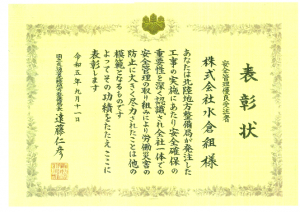 表彰状
安全管理優良受注者
株式会社水倉組様
あなたは北陸地方整備局が発注した
工事の実施にあたり安全確保の
重要性を深く認識され会社一体での
安全管理の取り組みにより労働災害の
防止に大きく尽力されたことは他の
模範となるものです
よってその功績をたたえここに
表彰します
令和五年九月十一日
国土交通省北陸地方整備局長 遠藤仁彦